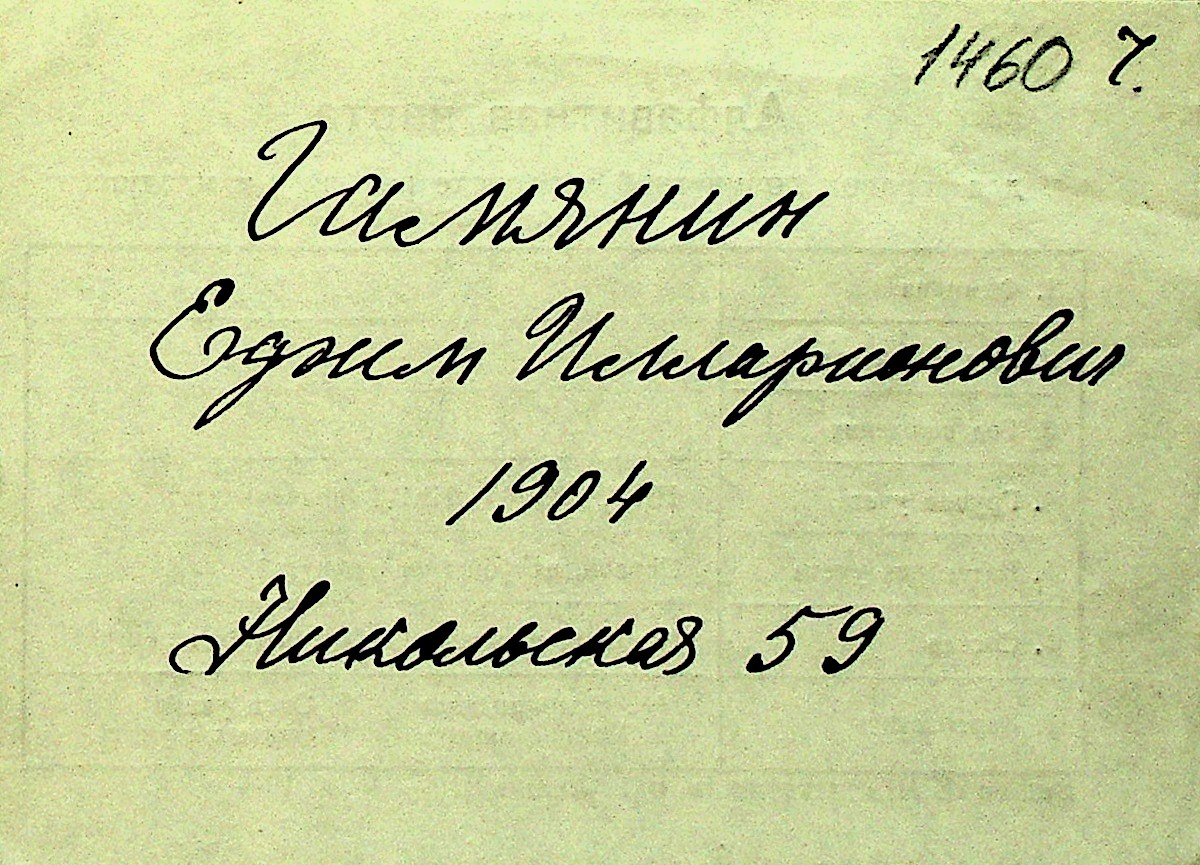 1460 г.
Гамянин
Ефим Илларионович
1904
Никольская 59